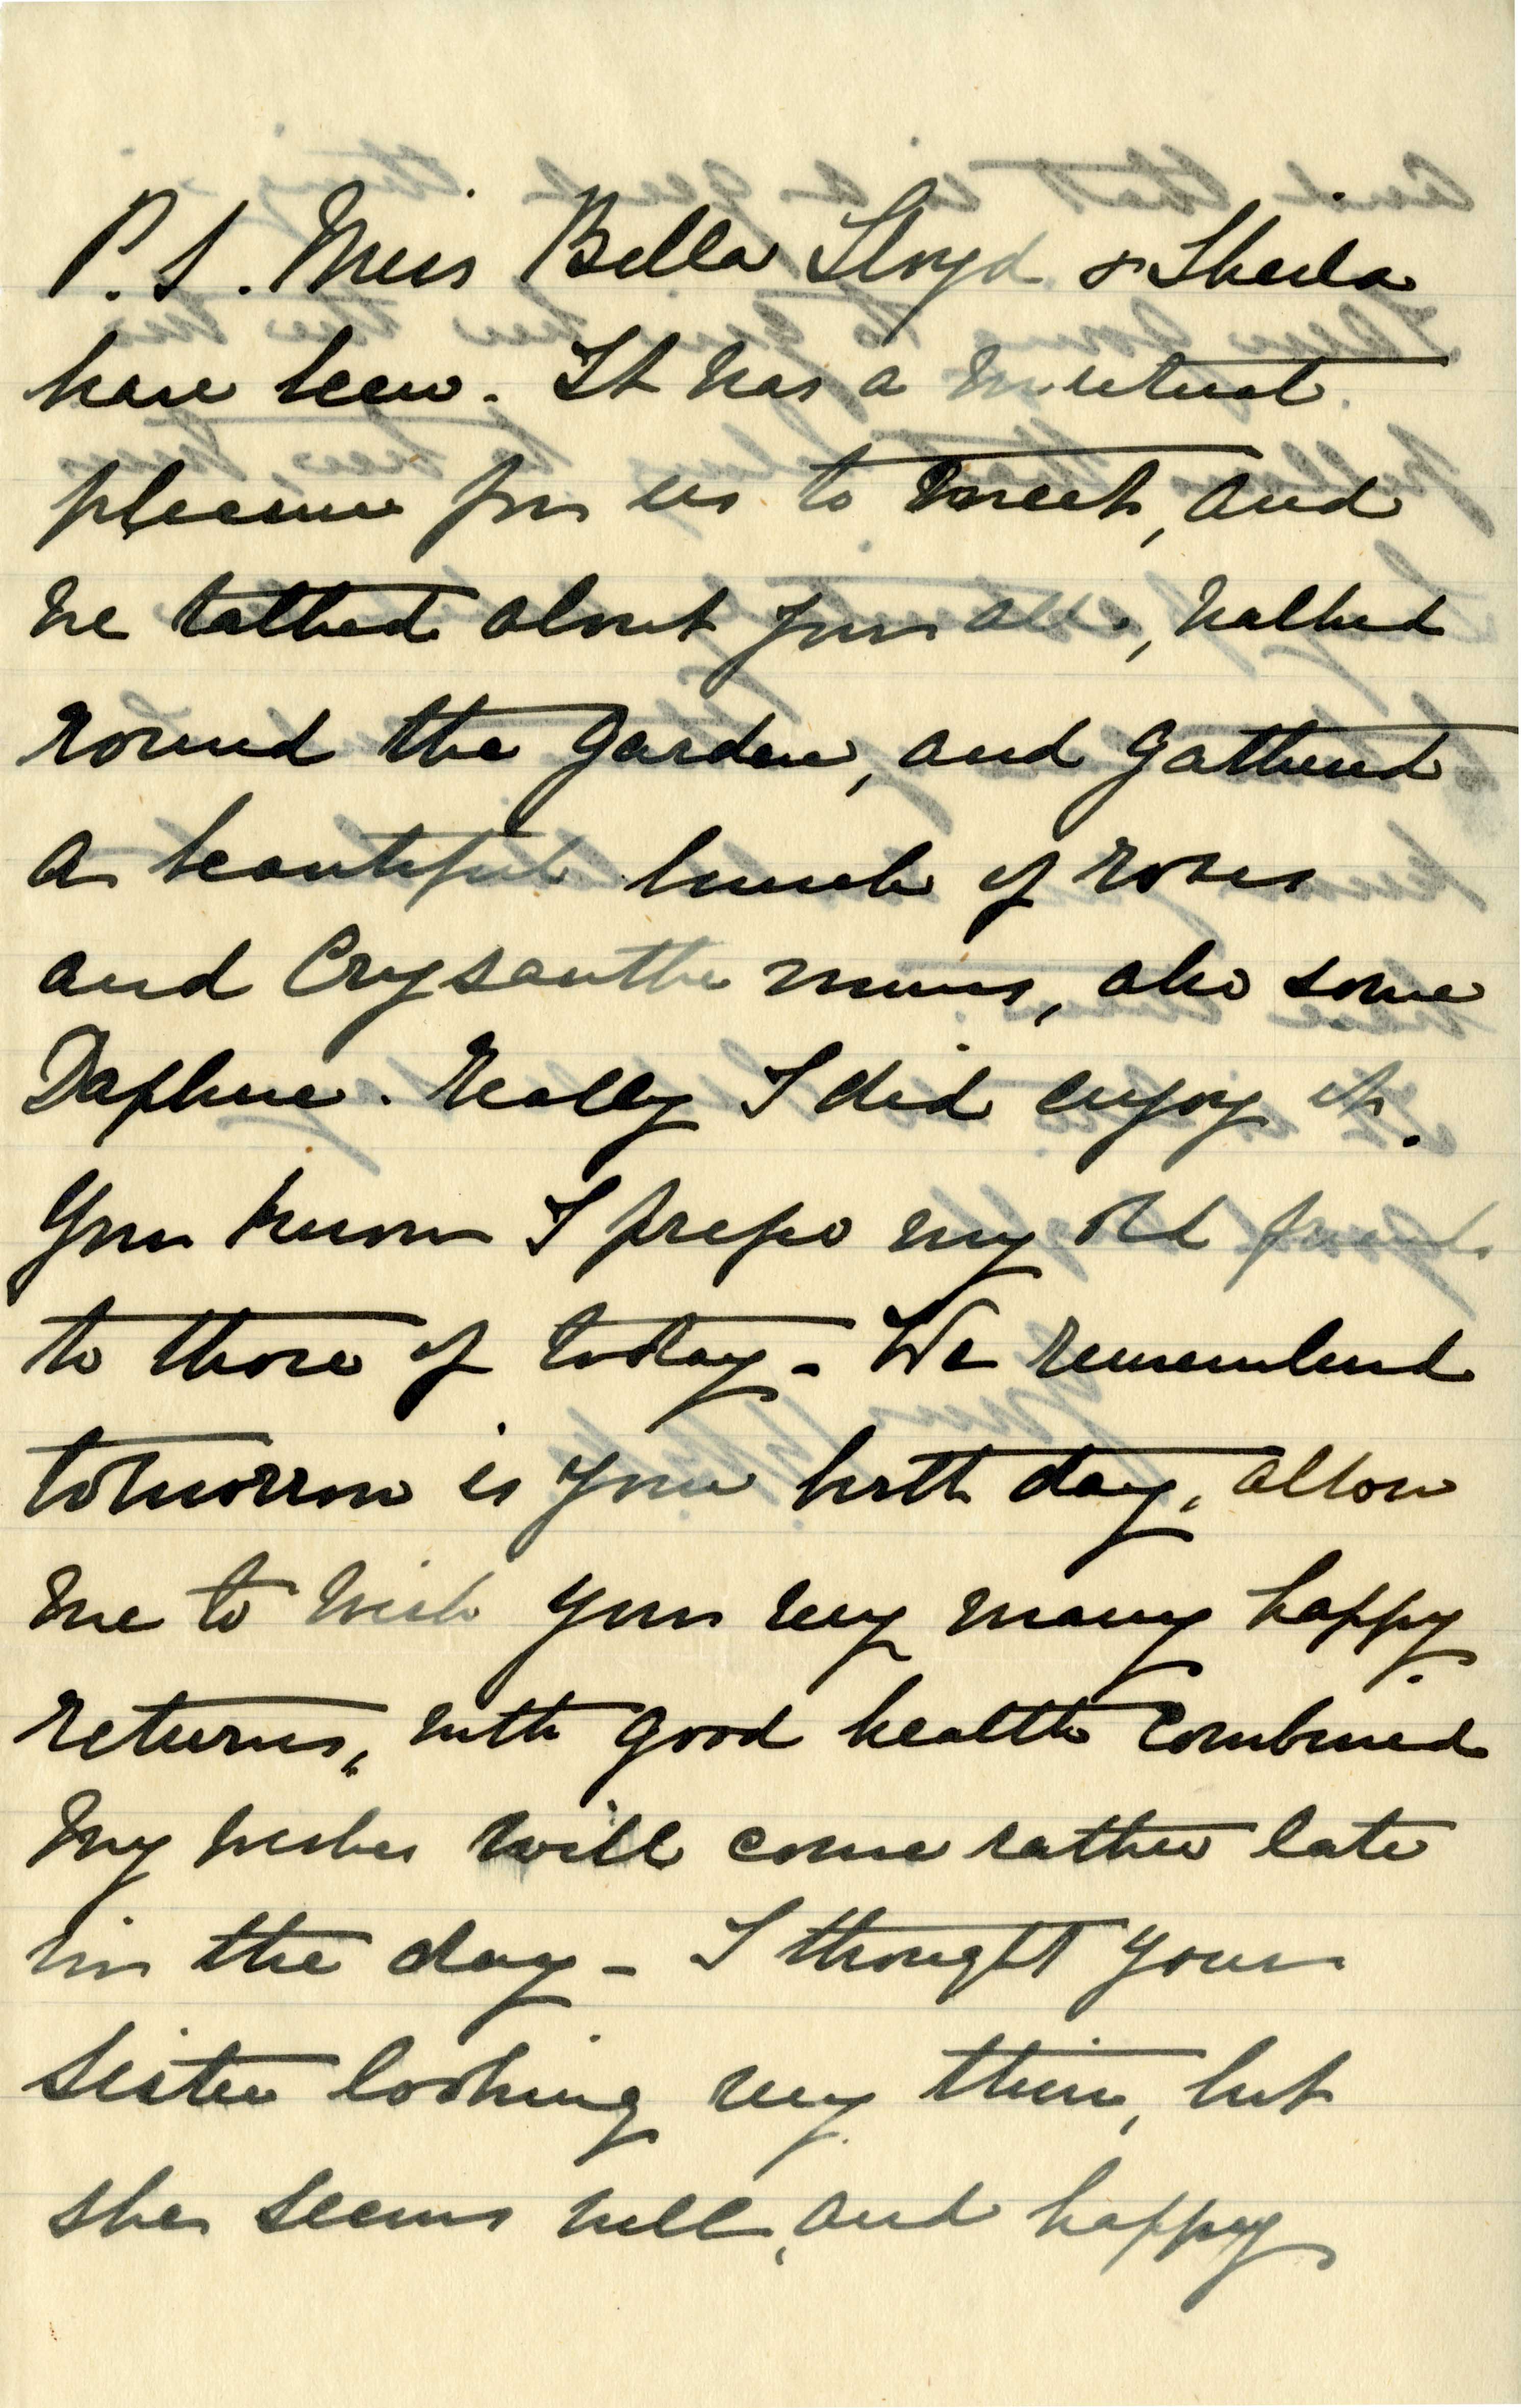 P.S. Miss Bella Lloyd & Sheila
have been. It was a mutual
pleasure for us to meet, and
we talked about you all, walked
round the garden, and gathered
a beautiful bunch of roses
and Crysanthemums, also some
Daphne. Really I did enjoy it.
You know I prefer my old friends
to those of today - We remembered
tomorrow is your birth day, allow
me to wish you very many happy
returns, with good health combined
My wishes will come rather late
in the day - I thought your
sister looking very thin, but
she seems well, and happy